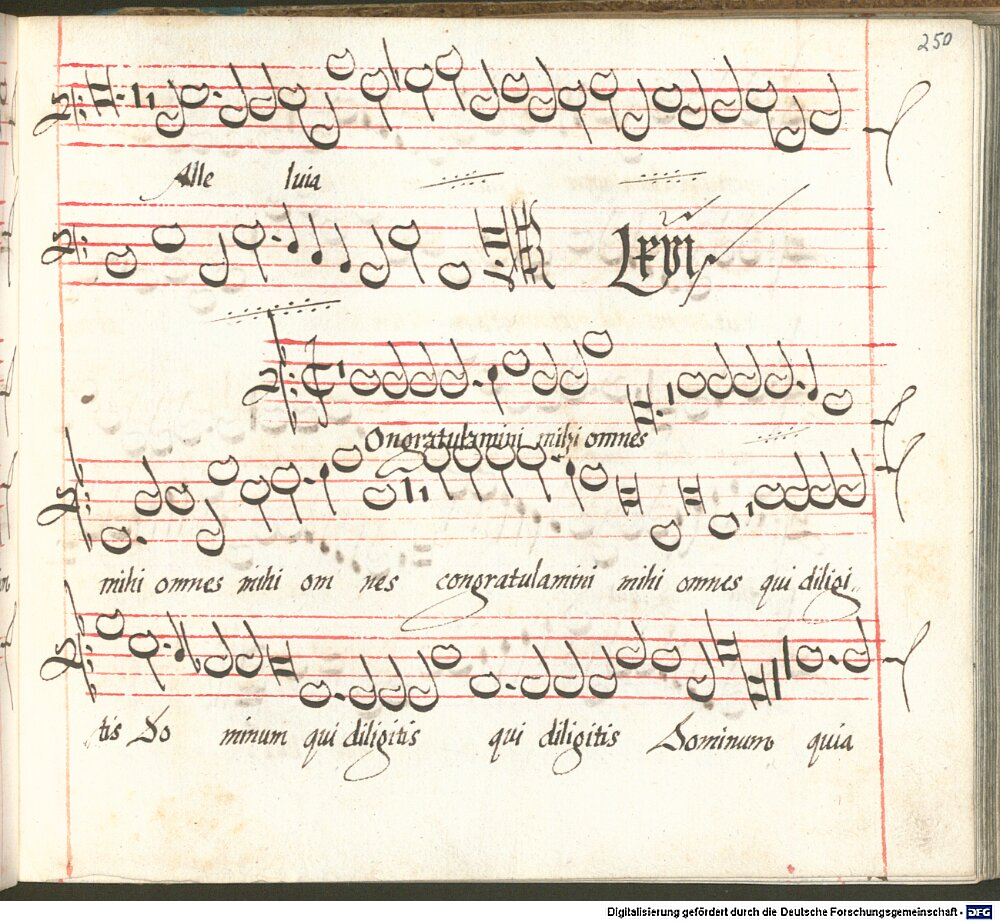 250
Alle luia
Lxvi
Congratulamini mihi omnes
mihi omnes mihi om nes congratulamini mihi omnes qui diligi
tis Do minum qui diligitis qui diligitis Dominum quia
Digitalisierung gefördert durch die Deutsche Forschungsgemeinschaft - DFG